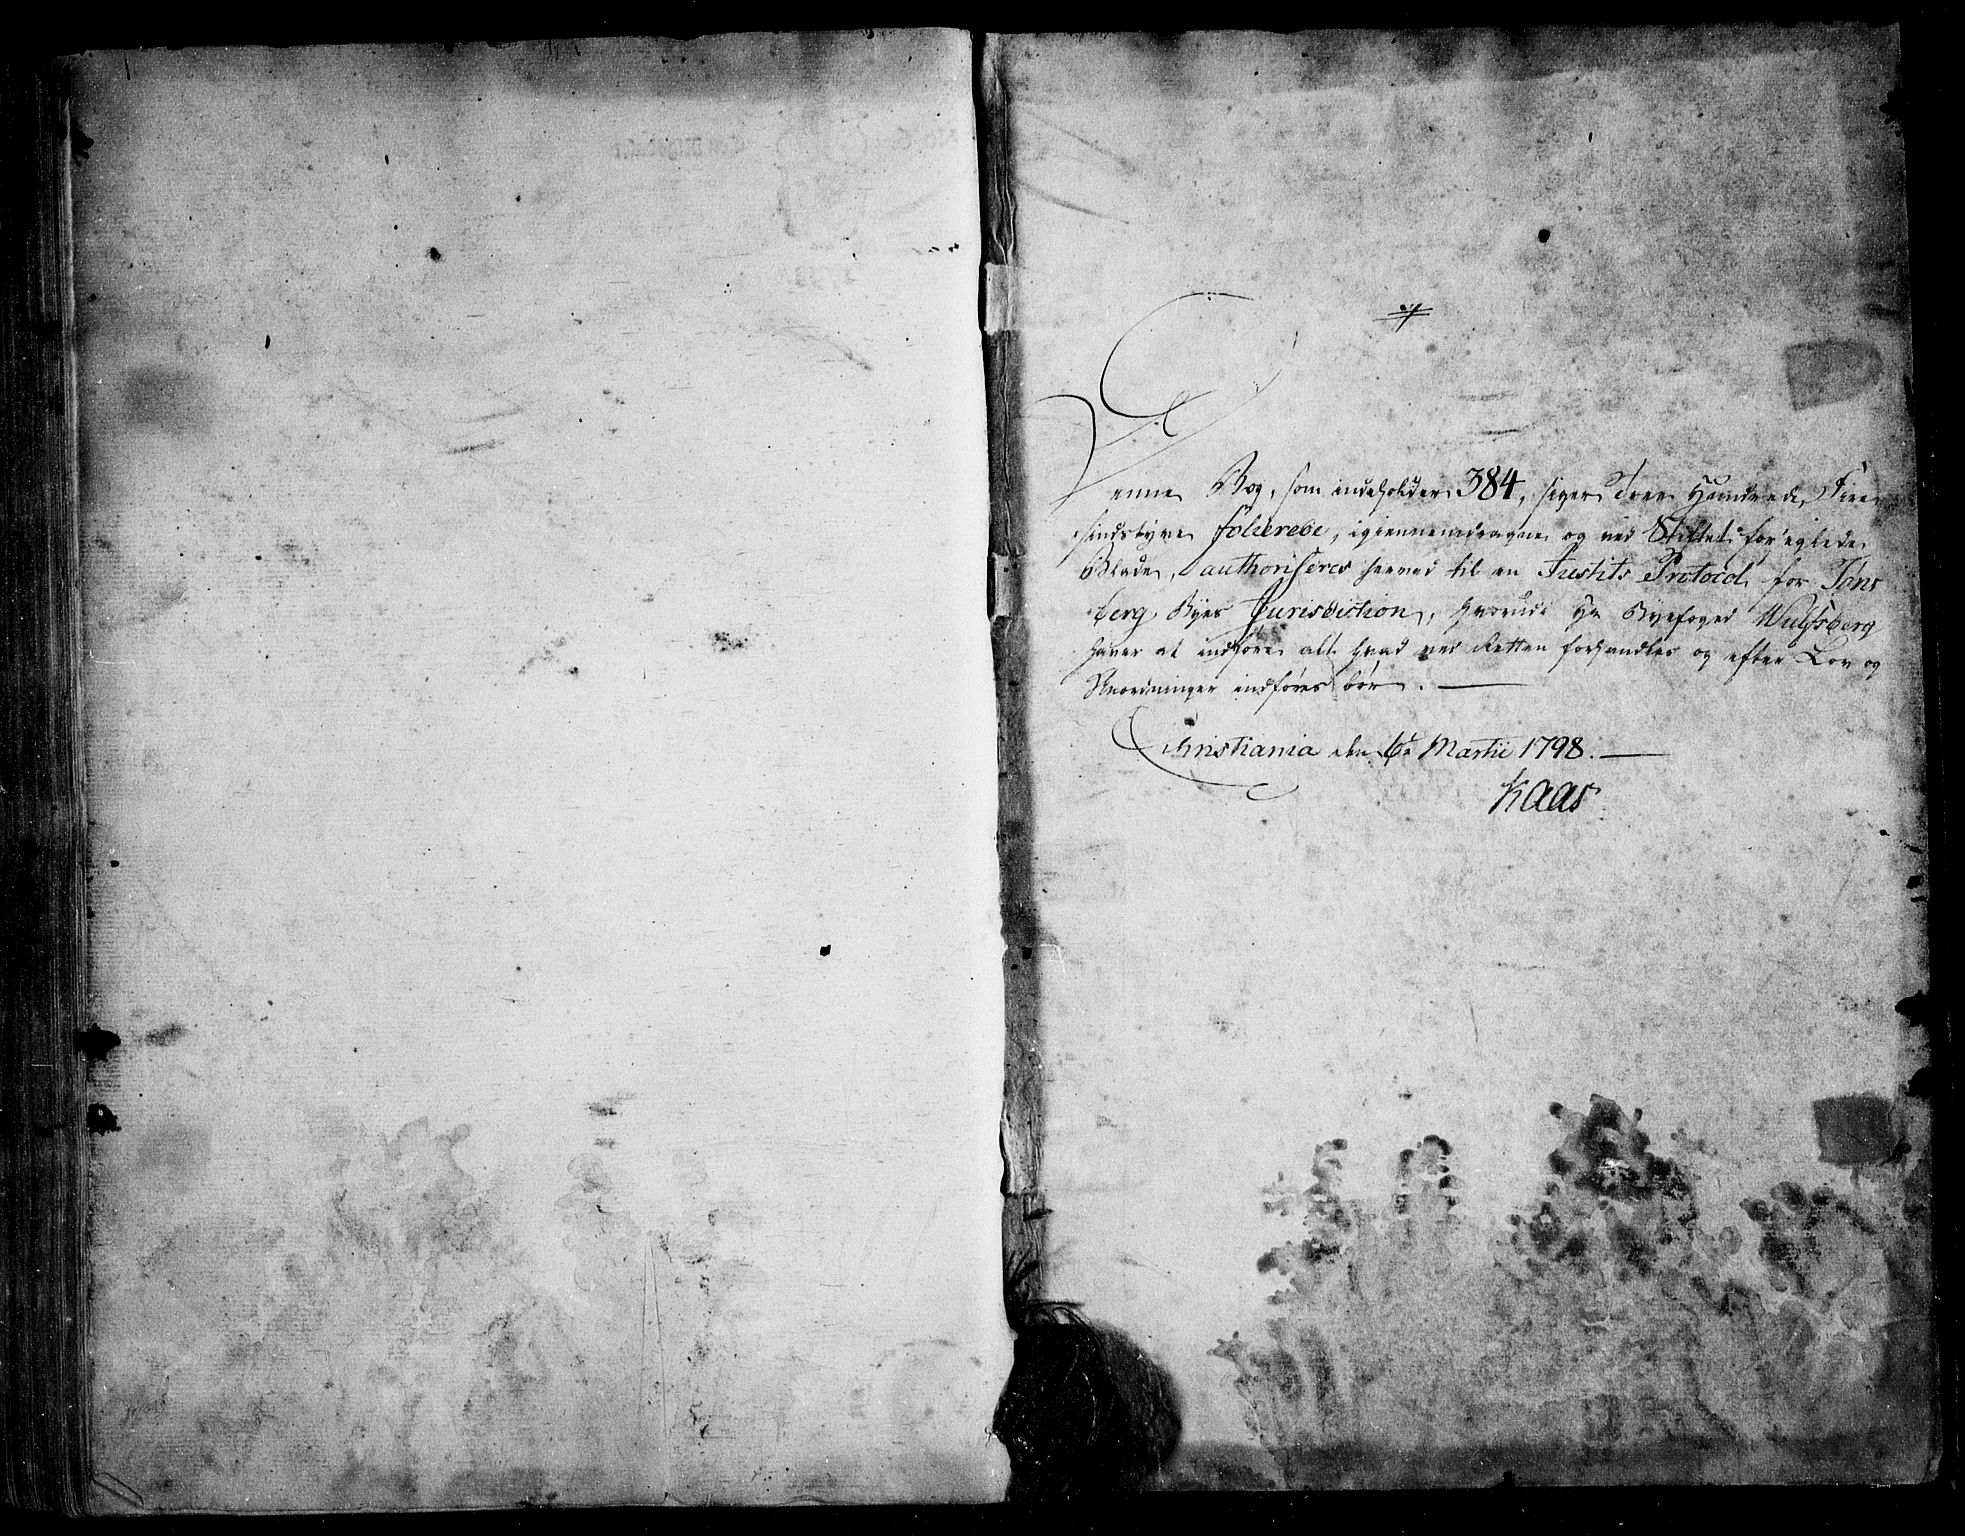 Denne Bog, som indeholder 384, siger Tree Hundrede, Fire
sindstyve folierede, igiennemdragne og ved Stiftet forseglede
Blade, authoriseres herved til en Justits Protocol for Töns
berg Byes Jurisdiction, hvorudi Hr Byefoged Wulfsberg
haver at indføre alt hvad ved Retten forhandles og efter Lov og
Anordninger indføres bör.
Christiania den Martii 1798.
Kaas